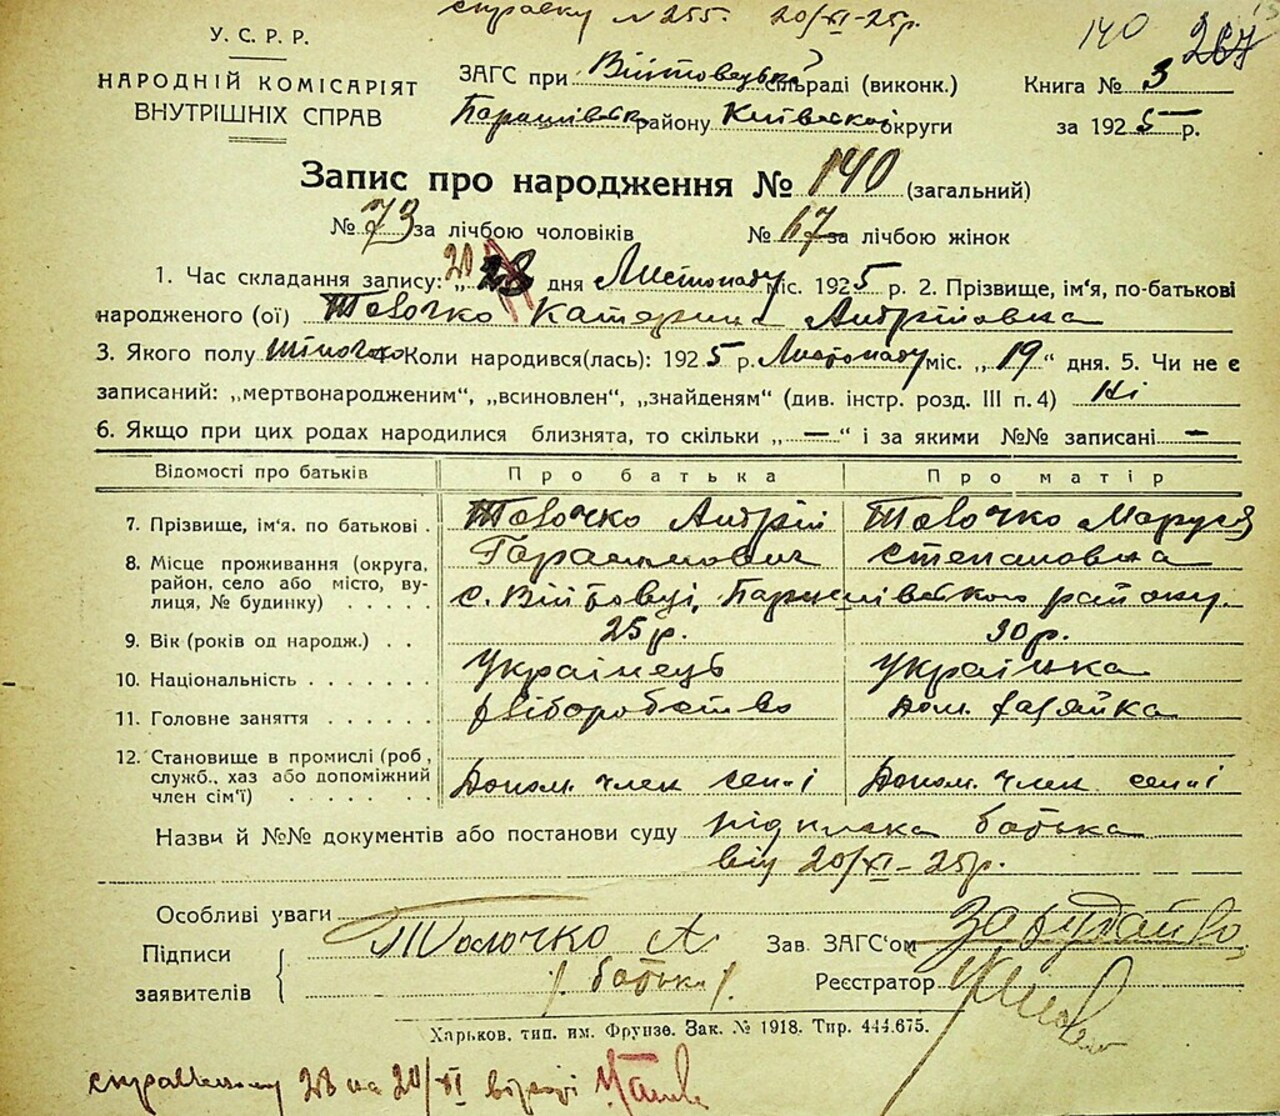 справку N 255. 20/XI-25р.
140 267
У. С. Р. Р.
НАРОДНІЙ КОМІСАРІЯТ
ВНУТРІШНІХ СПРАВ
ЗАГС при Війтовецькій сільраді (виконк.)
Баришівськ району Київської округи
Книга № 3
за 1925 р.
Запис про народження № 140 (загальний)
№ 73 за лічбою чоловіків № 67 за лічбою жінок
1. Час складання запису: „ 20 28 дня Листопаду міс. 1925 р. 2. Прізвище, ім‘я, по-батькові
народженого (ої) Товочко Катерина Андріювна
3. Якого полу жіночо 4. Коли народився(лась): 1925 р. Листопаду міс. „ 19 “ дня. 5. Чи не є
записаний: „мертвонародженим“, „всиновлен“, „знайденям“ (див. інстр. розд. III п. 4) Ні
6. Якщо при цих родах народилися близнята, то скільки „ — “ і за якими №№ записані —
Відомості про батьків Про батька Про матір
7. Прізвище, ім‘я. по батькові . Товочко Андрій Товочко Маруся
Гарасимович Степановна
8. Місце проживання (округа,
район, село або місто, ву-
лиця, № будинку) . . . . . с. Війтовці, Баришівського району.
9. Вік (років од народж.) . . 25 р. 30 р.
10. Національність . . . . . . . Українець Українка
11. Головне заняття . . . . . . хліборобство дом. хазяйка
12. Становище в промислі (роб,
служб., хаз або допоміжний
член сім‘ї) . . . . . . . Допом. член сем'ї Допом. член сем'ї
Назви й №№ документів або постанови суду підписка батька
від 20/XI-25р.
Особливі уваги
Підписи
заявителів
Толочко А
/ батьки /.
Зав. ЗАГС‘ом
Реєстратор
Харьков. тип. им. Фрунзе. Зак. № 1918. Тир. 444.675.
справленому 28 на 20/XI вірно